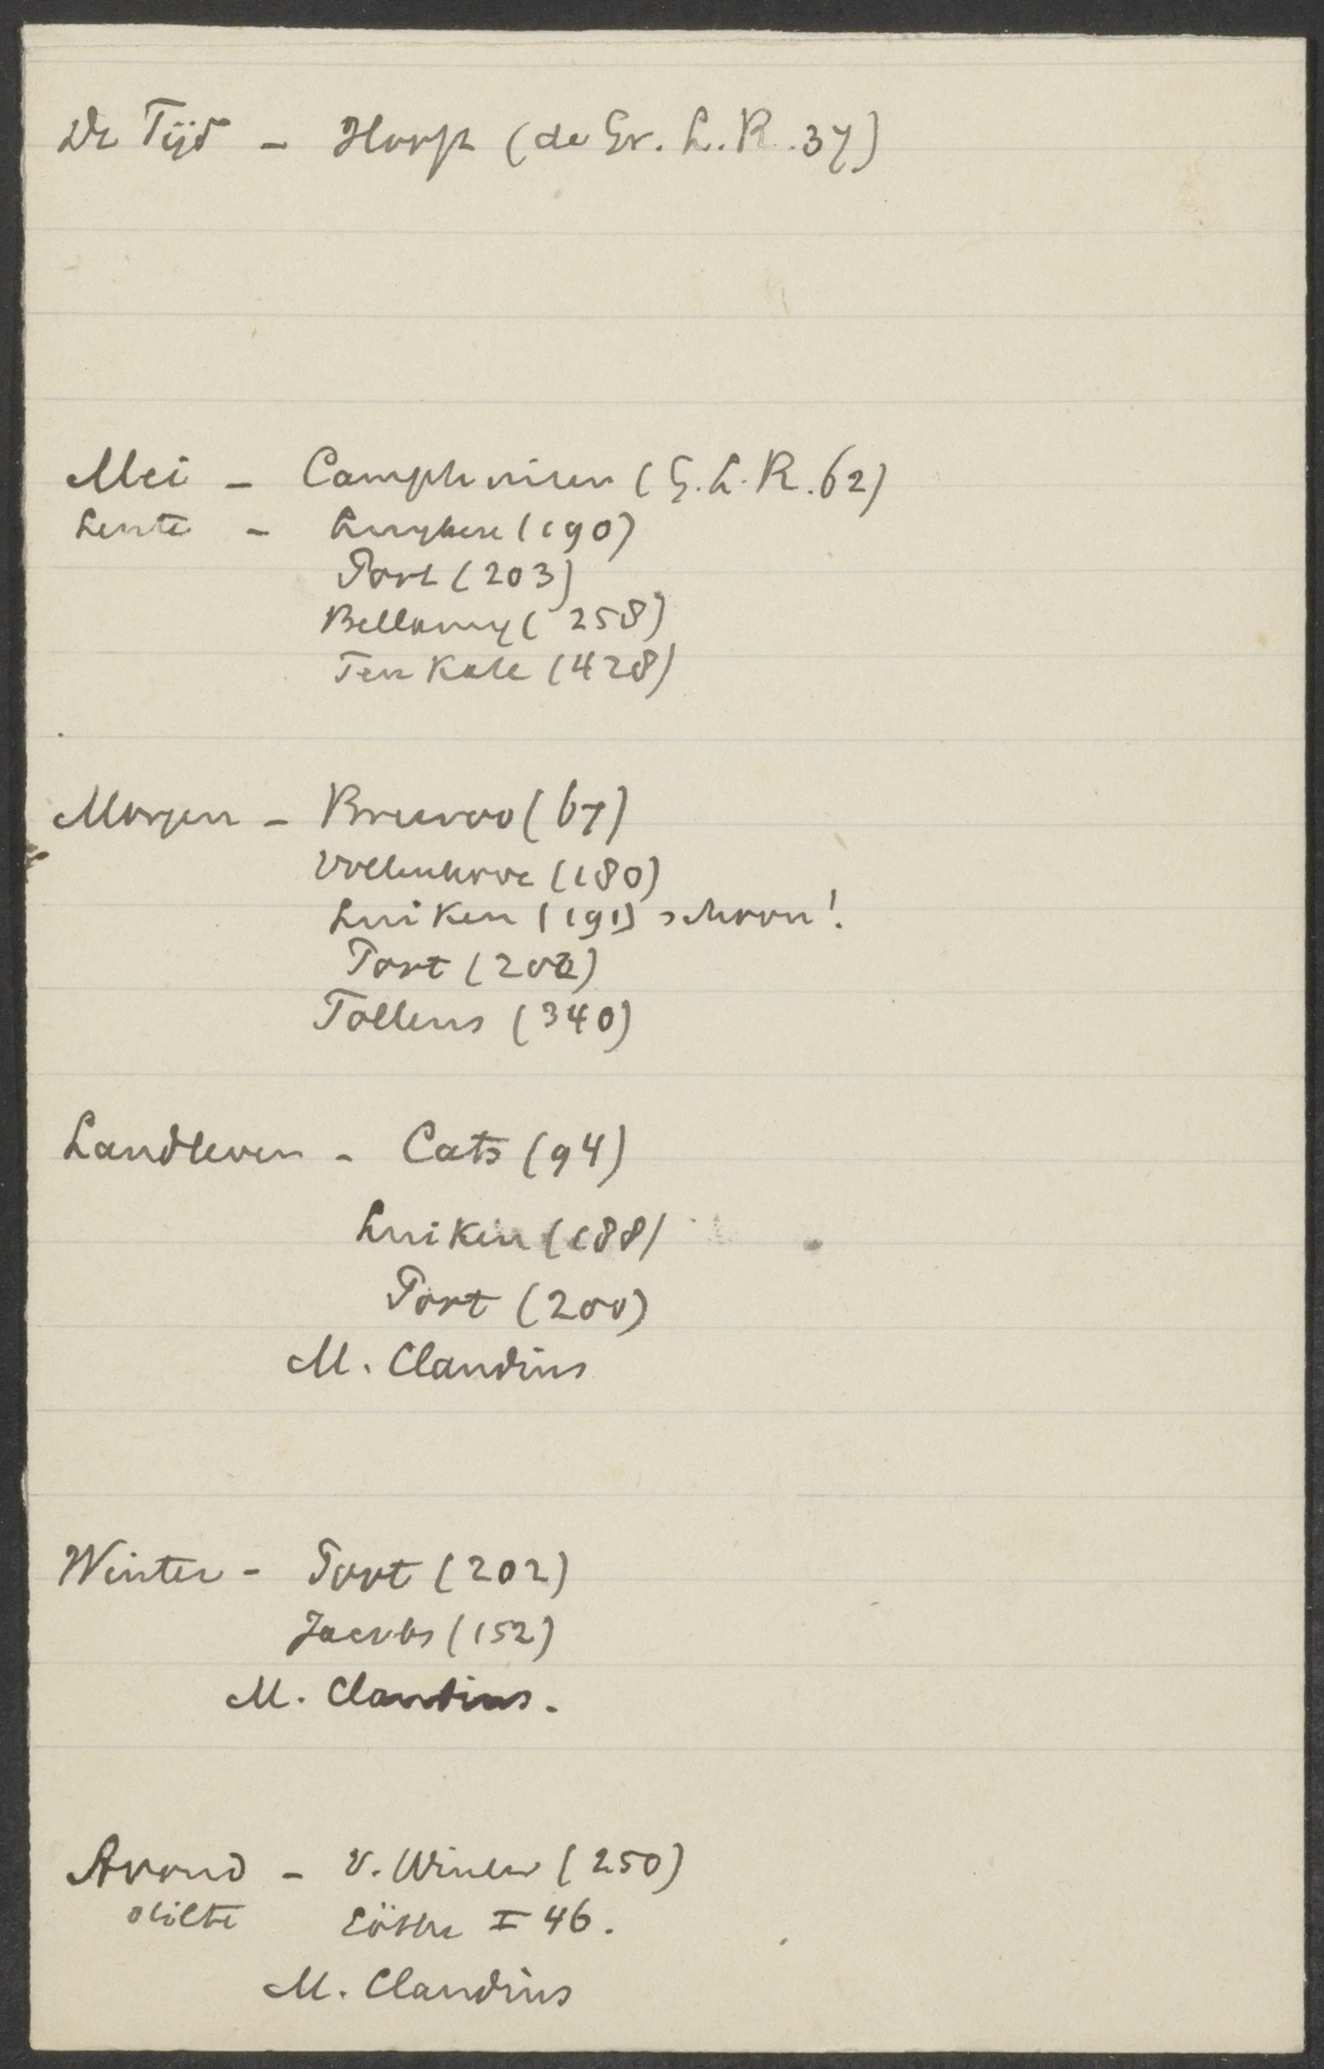 De Tijd - Hooft (de Gr. L. R. 37)
Mei - Camphuisen (G. L. R. 62)
Lente - Luyken (190)
Poot (203)
Bellamy (258)
Ten Kate (428)
Morgen - Brederoo (67)
Vollenhove (180)
Luiken (191) schoon!
Poot (202)
Tollens (340)
Landleven - Cats (94)
Luiken (188)
Poot (200)
M. Claudius
Winter - Poot (202)
Jacobs (152)
M. Claudius.
Avond - V. Winter (250)
stilte Göthe I 46.
M. Claudius